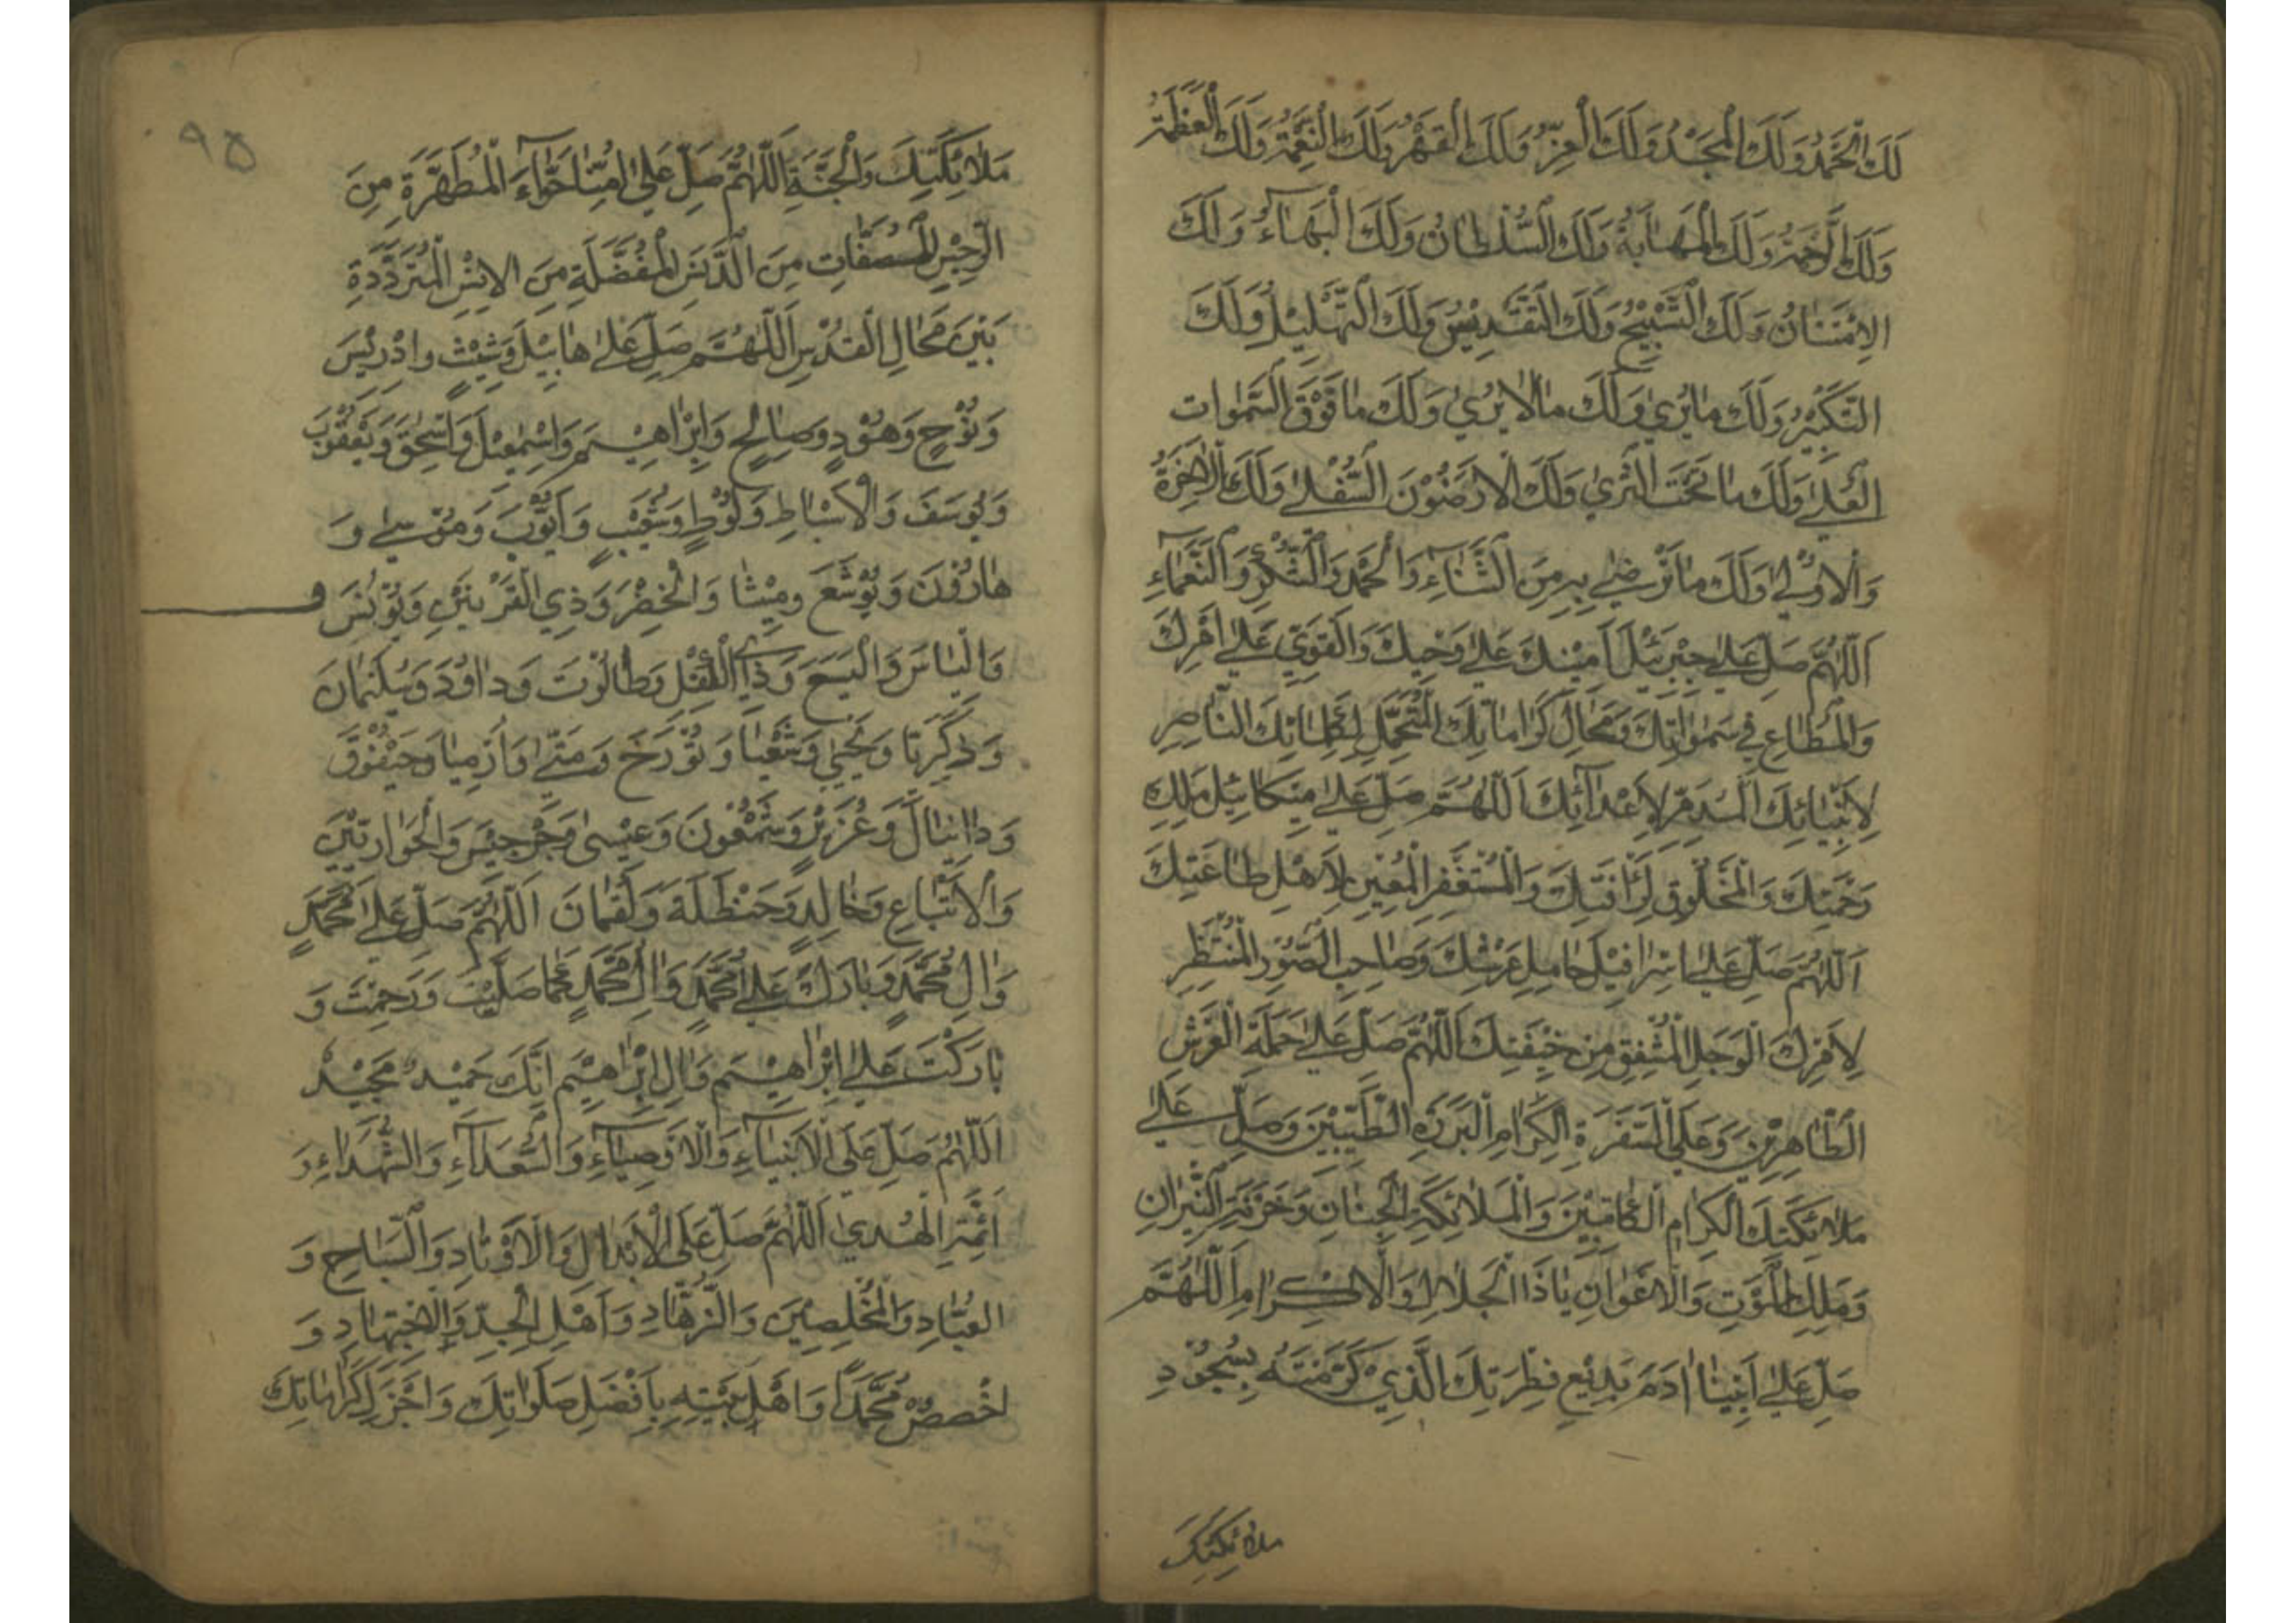 لَكَ الْحَمْدُ وَلَكَ الْمَجْدُ وَلَكَ الْعِزُّ وَلَكَ الْقَهْرُ وَلَكَ النِّعْمَةُ وَلَكَ الْعَظَمَةُ
وَلَكَ الرَّحْمَةُ وَلَكَ الْمَهَابَةُ وَلَكَ السُّلْطَانُ وَلَكَ الْبَهَآءُ وَلَكَ
الاِمْتِنَانُ وَلَكَ التَّسْبِيْحُ وَلَكَ التَّقْدِيْسُ وَلَكَ التَّهْلِيْلُ وَلَكَ
التَّكْبِيْرُ وَلَكَ مَا يُرىٰ وَلَكَ مَالاٰ يُرىٰ وَلَكَ مَا فَوْقَ السَّمٰوٰات
الْعُلىٰ وَلَكَ مَا تَحْتَ الثَّرىٰ وَلَكَ الْارَضُوْنَ السُّفْلىٰ وَلَكَ الْاٰخِرَةُ
وَالْاُوْلىٰ وَلَكَ مَا تَرْضىٰ بِهِ مِنَ الثَّنَآءِ وَالْحَمْدِ وَالشُّكْرِ وَالنَّعْمَآءِ
اَللّٰهُمَّ صَلِّ عَلىٰ جِبْرَئِيْلَ اَمِيْنِكَ عَلىٰ وَحْيِكَ وَالْقَوِيِّ عَلىٰ اَمْرِكَ
وَالْمُطَاعِ فِي سَمٰوٰاتِكَ وَمَحَالِ كَرَامَاتِكَ الْمُتَحَمِّلِ لِكَلِمَاتِكَ النَّاصِرِ
لِاَنْبِيَائِكَ الْمُدَمِّرِ لِاَعْدَآئِكَ اَللّٰهُمَّ صَلِّ عَلىٰ مِيْكَائِيْلَ مَلَكِ
رَحْمَتِكَ وَالْمَخْلُوْقِ لِرَأْفَتِكَ وَالْمُسْتَغْفِرِ الْمُعِيْنِ لِاَهْلِ طَاعَتِكَ
اَللّٰهُمَّ صَلِّ عَلىٰ اِسْرَافِيْلَ حَامِلِ عَرْشِكَ وَصَاحِبِ الصُّوْرِ الْمُنْتَظِرِ
لِاَمْرِكَ الْوَجِلِ الْمُشْفِقِ مِنْ خِيْفَتِكَ اَللّٰهُمَّ صَلِّ عَلىٰ حَمَلَةِ الْعَرْشِ
الطَّاهِرِيْنَ وَعَلَى السَّفَرَةِ الْكِرَامِ الْبَرَرَةِ الطَّيِّبِيْنَ وَصَلِّ عَلىٰ
مَلاٰئِكَتِكَ الْكِرَامِ الْكَاتِبِيْنَ وَالْمَلاٰئِكَةِ الْجِنَانِ وَخَزَنَةِ النِّيْرَانِ
وَمَلَكِ الْمَوْتِ وَالْاَعْوَانِ يَا ذَا الْجَلاٰلِ وَالْاِكْرَامِ اَللّٰهُمَّ
صَلِّ عَلىٰ اَبِيْنَا اٰدَمَ بَدِيْعِ فِطْرَتِكَ الَّذِيْ كَرَّمْتَهُ بِسُجُوْدِ
ملائكتك
٩٥
مَلاٰئِكَتِكَ وَالْجَنَّةِ اَللّٰهُمَّ صَلِّ عَلىٰ اُمِّنَا حَوَّآءَ الْمُطَهَّرَةِ مِنَ
الرِّجْسِ الْمُصَفَّاتِ مِنَ الدَّنَسِ الْمُفَضَّلَةِ مِنَ الاِنْسِ الْمُتَرَدِّدَةِ
بَيْنَ مَحَالِ الْقُدْسِ اَللّٰهُمَّ صَلِّ عَلىٰ هَابِيْلَ وَشِيْثٍ وَادْرِيْسَ
وَنُوْحٍ وَهُوْدٍ وَصَالِحٍ وَاِبْرَاهِيْمَ وَاِسْمٰعِيْلَ وَاِسْحٰقَ وَيَعْقُوْبَ
وَيُوسَفَ وَالْاَسْبَاطِ وَلُوْطٍ وَشُعَيْبٍ وَاَيُّوْبَ وَمُوْسىٰ وَ
هَارُوْنَ وَيُوْشَعَ وَمِيْشَا وَالْخِضْرَ وَذِي الْقَرْنَيْنِ وَيُوْنُسَ
وَاِلْيَاسَ وَالْيَسَعَ وَذِي الْكِفْلِ وَطَالُوْتَ وَدَاوُدَ وَسُلَيْمَانَ
وَزَكَرِيَّا وَيَحْيىٰ وَشَعْيَا وَتُوْرَخَ وَمَتّىٰ وَاَرْمِيَا وَحَيْقُوْقَ
وَدَانِيَالَ وَعُزَيْرٍ وَشَمْعُوْنَ وَعِيْسىٰ وَجِرْجِيْسَ وَالْحَوَارِيِّيْنَ
وَالْاَتْبَاعِ وَخَالِدٍ وَحَنْظَلَةَ وَلُقْمَانَ اَللّٰهُمَّ صَلِّ عَلىٰ مُحَمَّدٍ
وَاٰلِ مُحَمَّدٍ وَبَارِكْ عَلىٰ مُحَمَّدٍ وَاٰلِ مُحَمَّدٍ كَمَا صَلَّيْتَ وَرَحِمْتَ وَ
بَارَكْتَ عَلىٰ اِبْرَاهِيْمَ وَاٰلِ اِبْرَاهِيْمَ اِنَّكَ حَمِيْدٌ مَجِيْدٌ
اَللّٰهُمَّ صَلِّ عَلَى الْاَنْبِيَآءِ وَالْاَوْصِيَآءِ وَالسُّعَدَآءِ وَالشُّهَدَاءِ وَ
اَئِمَّةِ الْهُدىٰ اَللّٰهُمَّ صَلِّ عَلَى الْاَبْدَالِ وَالْاَوْتَادِ وَالسَّيَّاحِ وَ
الْعُبَّادِ وَالْمُخْلِصِيْنَ وَالزُّهَّادِ وَاَهْلِ الْجِدِّ وَالْاِجْتِهَادِ وَ
اخْصُصْ مُحَمَّدًا وَاَهْلَ بَيْتِهِ بِاَفْضَلِ صَلَوٰاتِكَ وَاَجْزَلِ كَرَامَاتِكَ